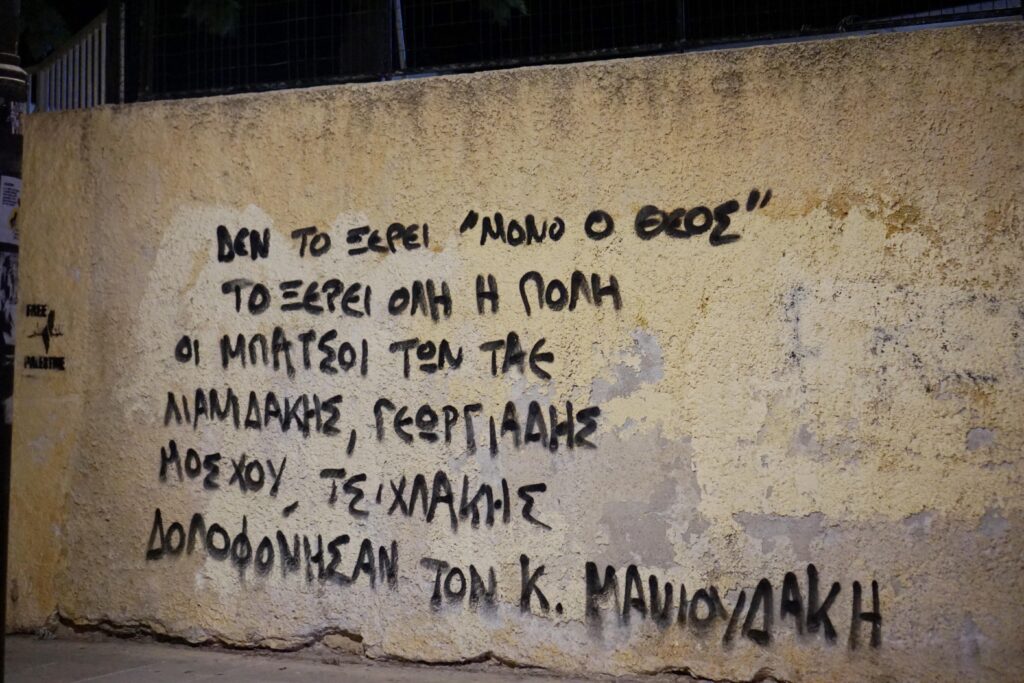 ΔΕΝ ΤΟ ΞΕΡΕΙ "ΜΟΝΟ Ο ΘΕΟΣ"
ΤΟ ΞΕΡΕΙ ΟΛΗ Η ΠΟΛΗ
ΟΙ ΜΠΑΤΣΟΙ ΤΩΝ ΤΑΕ
ΛΙΑΝΙΔΑΚΗΣ, ΓΕΩΡΓΙΑΔΗΣ
ΜΟΣΧΟΥ, ΤΣΙΧΛΑΚΗΣ
ΔΟΛΟΦΟΝΗΣΑΝ ΤΟΝ Κ. ΜΑΝΙΟΥΔΑΚΗ
FREE
PALESTINE